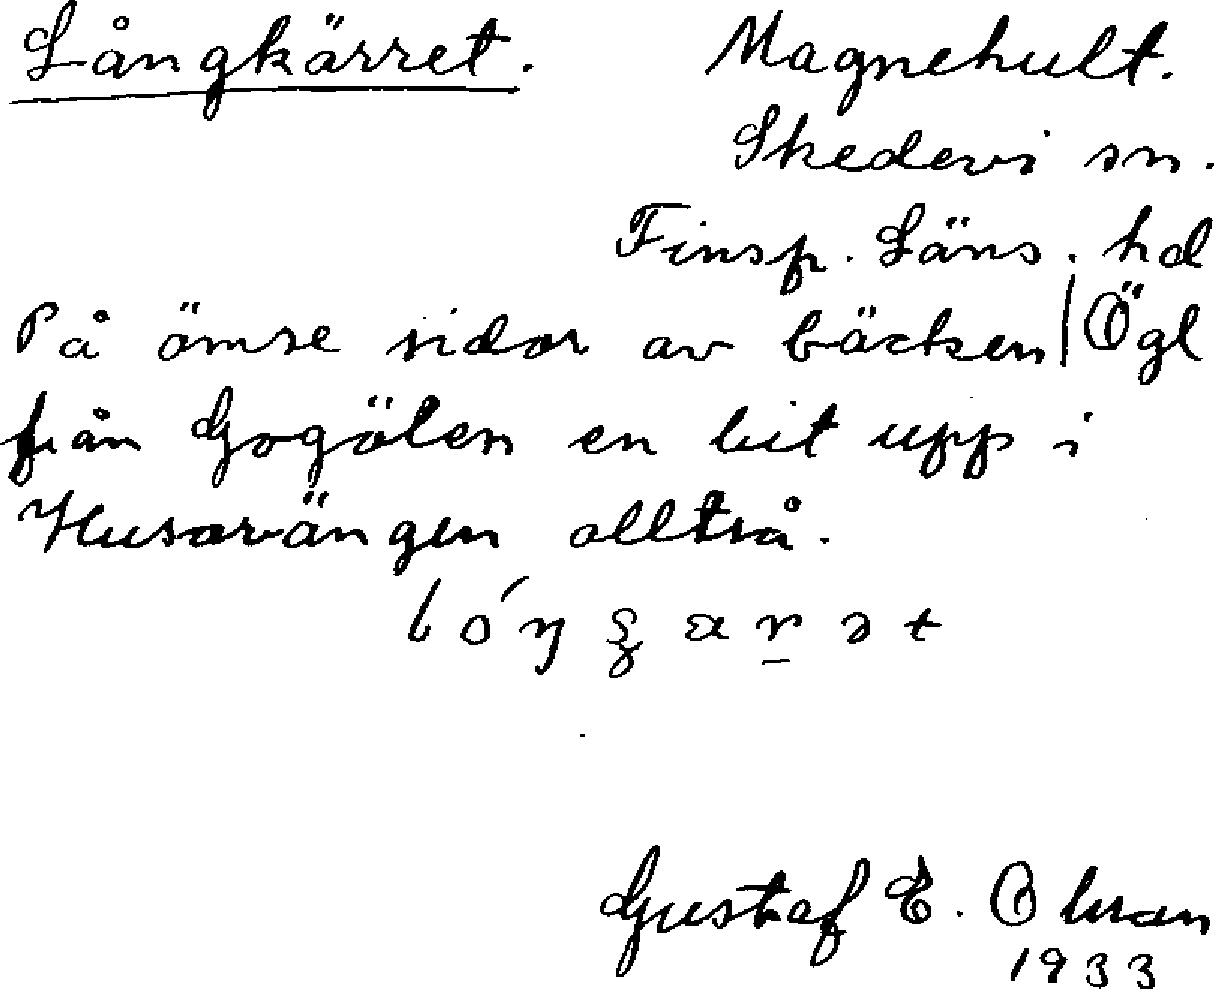 Långkärret. Magnehult.
Skedevi sn.
Finsp. Läns. hd
På ömse sidor av bäcken | Ögl
från Gogölen en bit upp i
Husarängen alltså.
Gustaf E. Ohman
1933